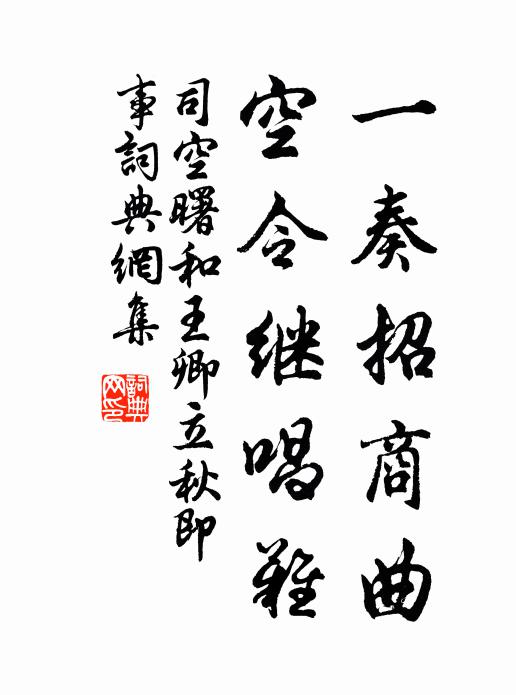 一奏招商曲
空令继唱難
司空曙和王卿立秋即
事詞典網集
詞典
网印